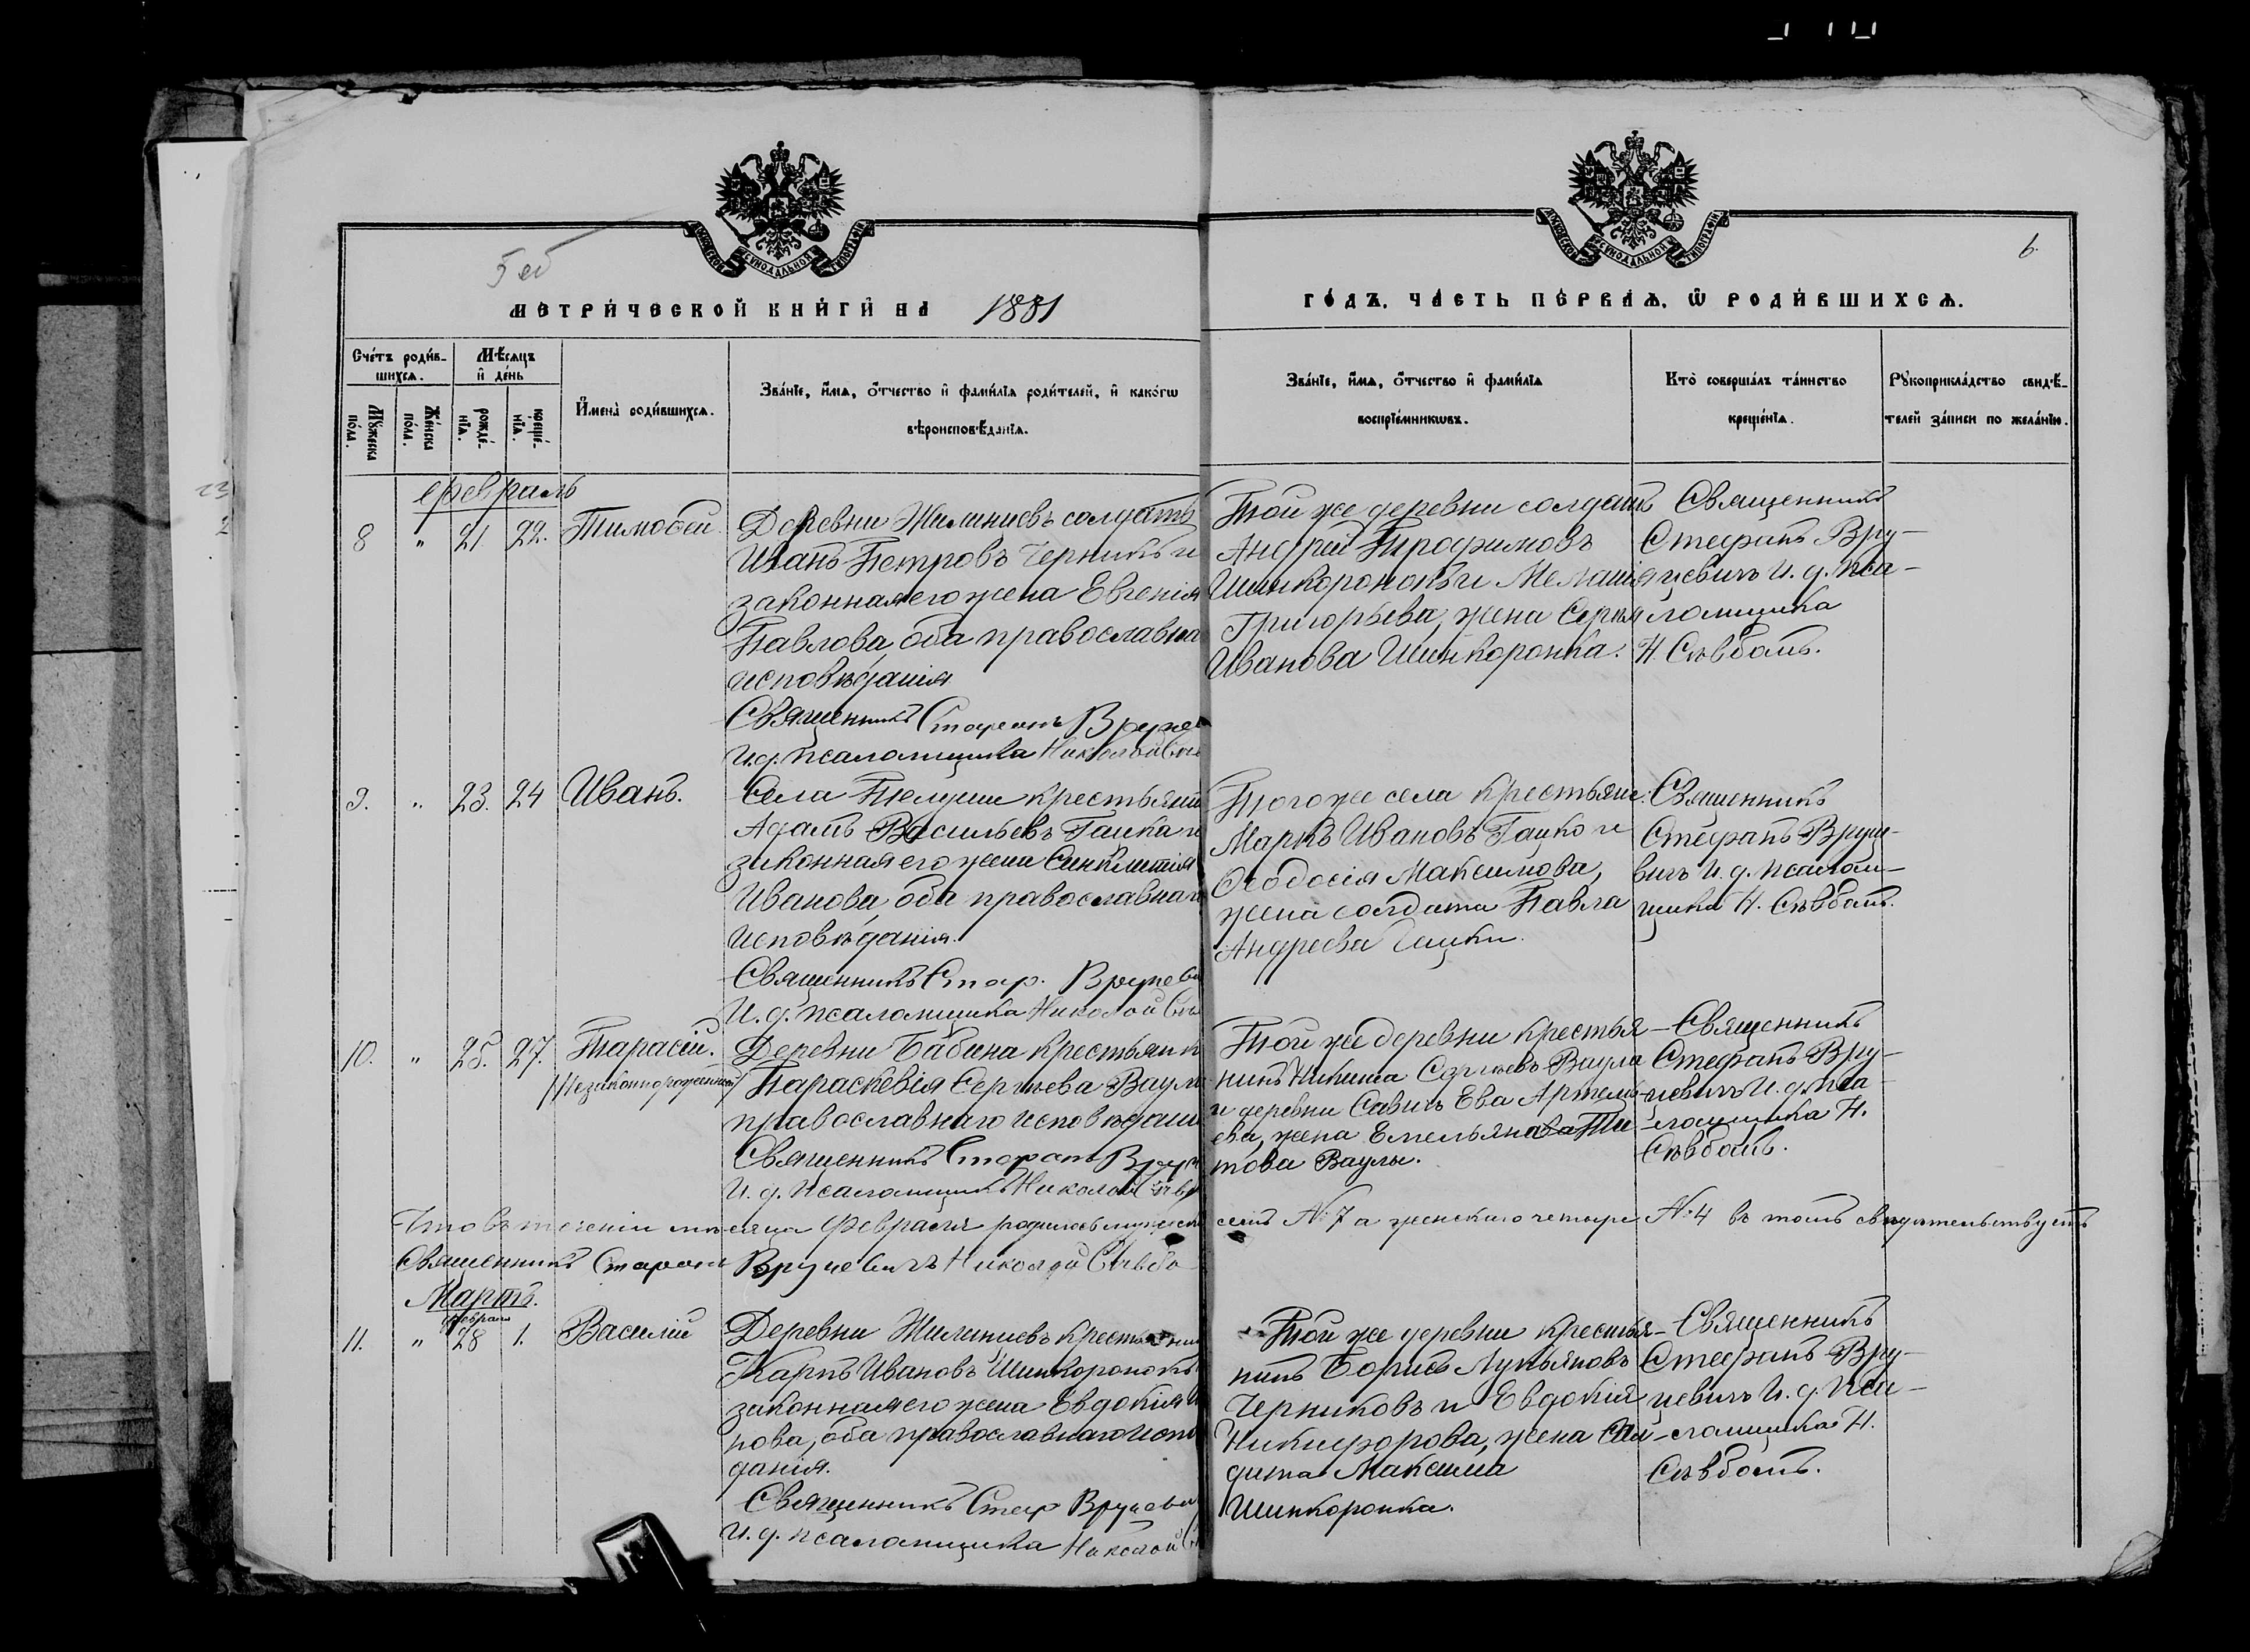 5 об
6.
МИНСКОЙ СѴНОДАЛЬНОЙ ТИПОГРАФІИ
СѴНОДАЛЬНОЙ ТИПОГРАФІИ
МЕТРИЧЕСКОЙ КНИГИ НА 1881
ГОДЪ. ЧАСТЬ ПЕРВАЯ, Ѡ РОДИВШИХСЯ.
Счетъ родив-
шихся.
Мѣсяцъ
и день
Мужеска пола.
Женска пола.
рожде-
нїя.
креще-
нїя.
Имена родившихся.
Званїе, имя, отчество и фамилїя родителей, и какогѡ
вѣроисповѣданїя.
Званїе, имя, отчество и фамилїя
воспрїемникѡвъ.
Кто совершалъ таинство
крещенїя.
Рукоприкладство свидѣ-
телей записи по желанїю.
февраль
8 " 21. 22. Тимофей.
Деревни Жилиничъ солдатъ
Иванъ Петровъ Черникъ и
законная его жена Евгенія
Павлова, оба православна
исповѣданія
Священникъ Стефанъ Вруце
И. д. псаломщика Николай Съ
Той же деревни солдатъ
Андрей Трофимовъ
Шинкоронокъ и Меланія
Григорьева, жена Сергѣя
Иванова Шинкоронка.
Священникъ
Стефанъ Вру-
цевичъ И. д. Пса-
ломщика
Н. Съвботъ.
9. " 23. 24 Иванъ.
Села Телуши крестьянин
Адамъ Васильевъ Гацка и
законная его жена Синклитія
Иванова, оба православнаг
исповѣданія.
Священникъ Стеф. Вруцеви
И. д. псаломщика Николай Съ
Того же села крестьяне:
Маркъ Ивановъ Гацко и
Ѳеодосія Максимова,
жена солдата Павла
Андреева Гацки.
Священникъ
Стефанъ Вруце-
вичъ И. д. псалом-
щика Н. Съвботъ.
10. " 25. 27. Тарасій.
/Незаконнорожденный/
Деревни Бабина крестьянк
Параскевія Сергѣева Ваул
православнаго исповѣдані
Священникъ Стефанъ Вруц
И. д. псаломщикъ Николай Съв
Той же деревни крестья-
нинъ Никита Сергѣевъ Ваула
и деревни Савичъ Ева Артемь-
ева, жена Емельяна Ти-
това Ваулы.
Священникъ
Стефанъ Вру-
цевичъ И. д. Пса-
ломщика Н.
Съвботъ.
Что въ теченіи мѣсяца Февраля родилось мужеск семь № 7 а женскаго четыре № 4 въ томъ свидѣтельствуетъ
Священникъ Стефанъ Вруцевичъ Николай Съвбо
Мартъ.
февраль
11. " 28 1. Василій
Деревни Жилиничъ крестьянин
Карпъ Ивановъ Шинкоронокъ
законная его жена Евдокія
нова, оба православнаго испо
данія.
Священникъ Стеф Вруцеви
И. д. псаломщика Николай
Той же деревни крестья-
нинъ Борисъ Лукьяновъ
Черниковъ и Евдокія
Никифорова, жена Сол-
дата Максима
Шинкоронка.
Священникъ
Стефанъ Вру-
цевичъ И. д. Пса-
ломщика Н.
Съвботъ.